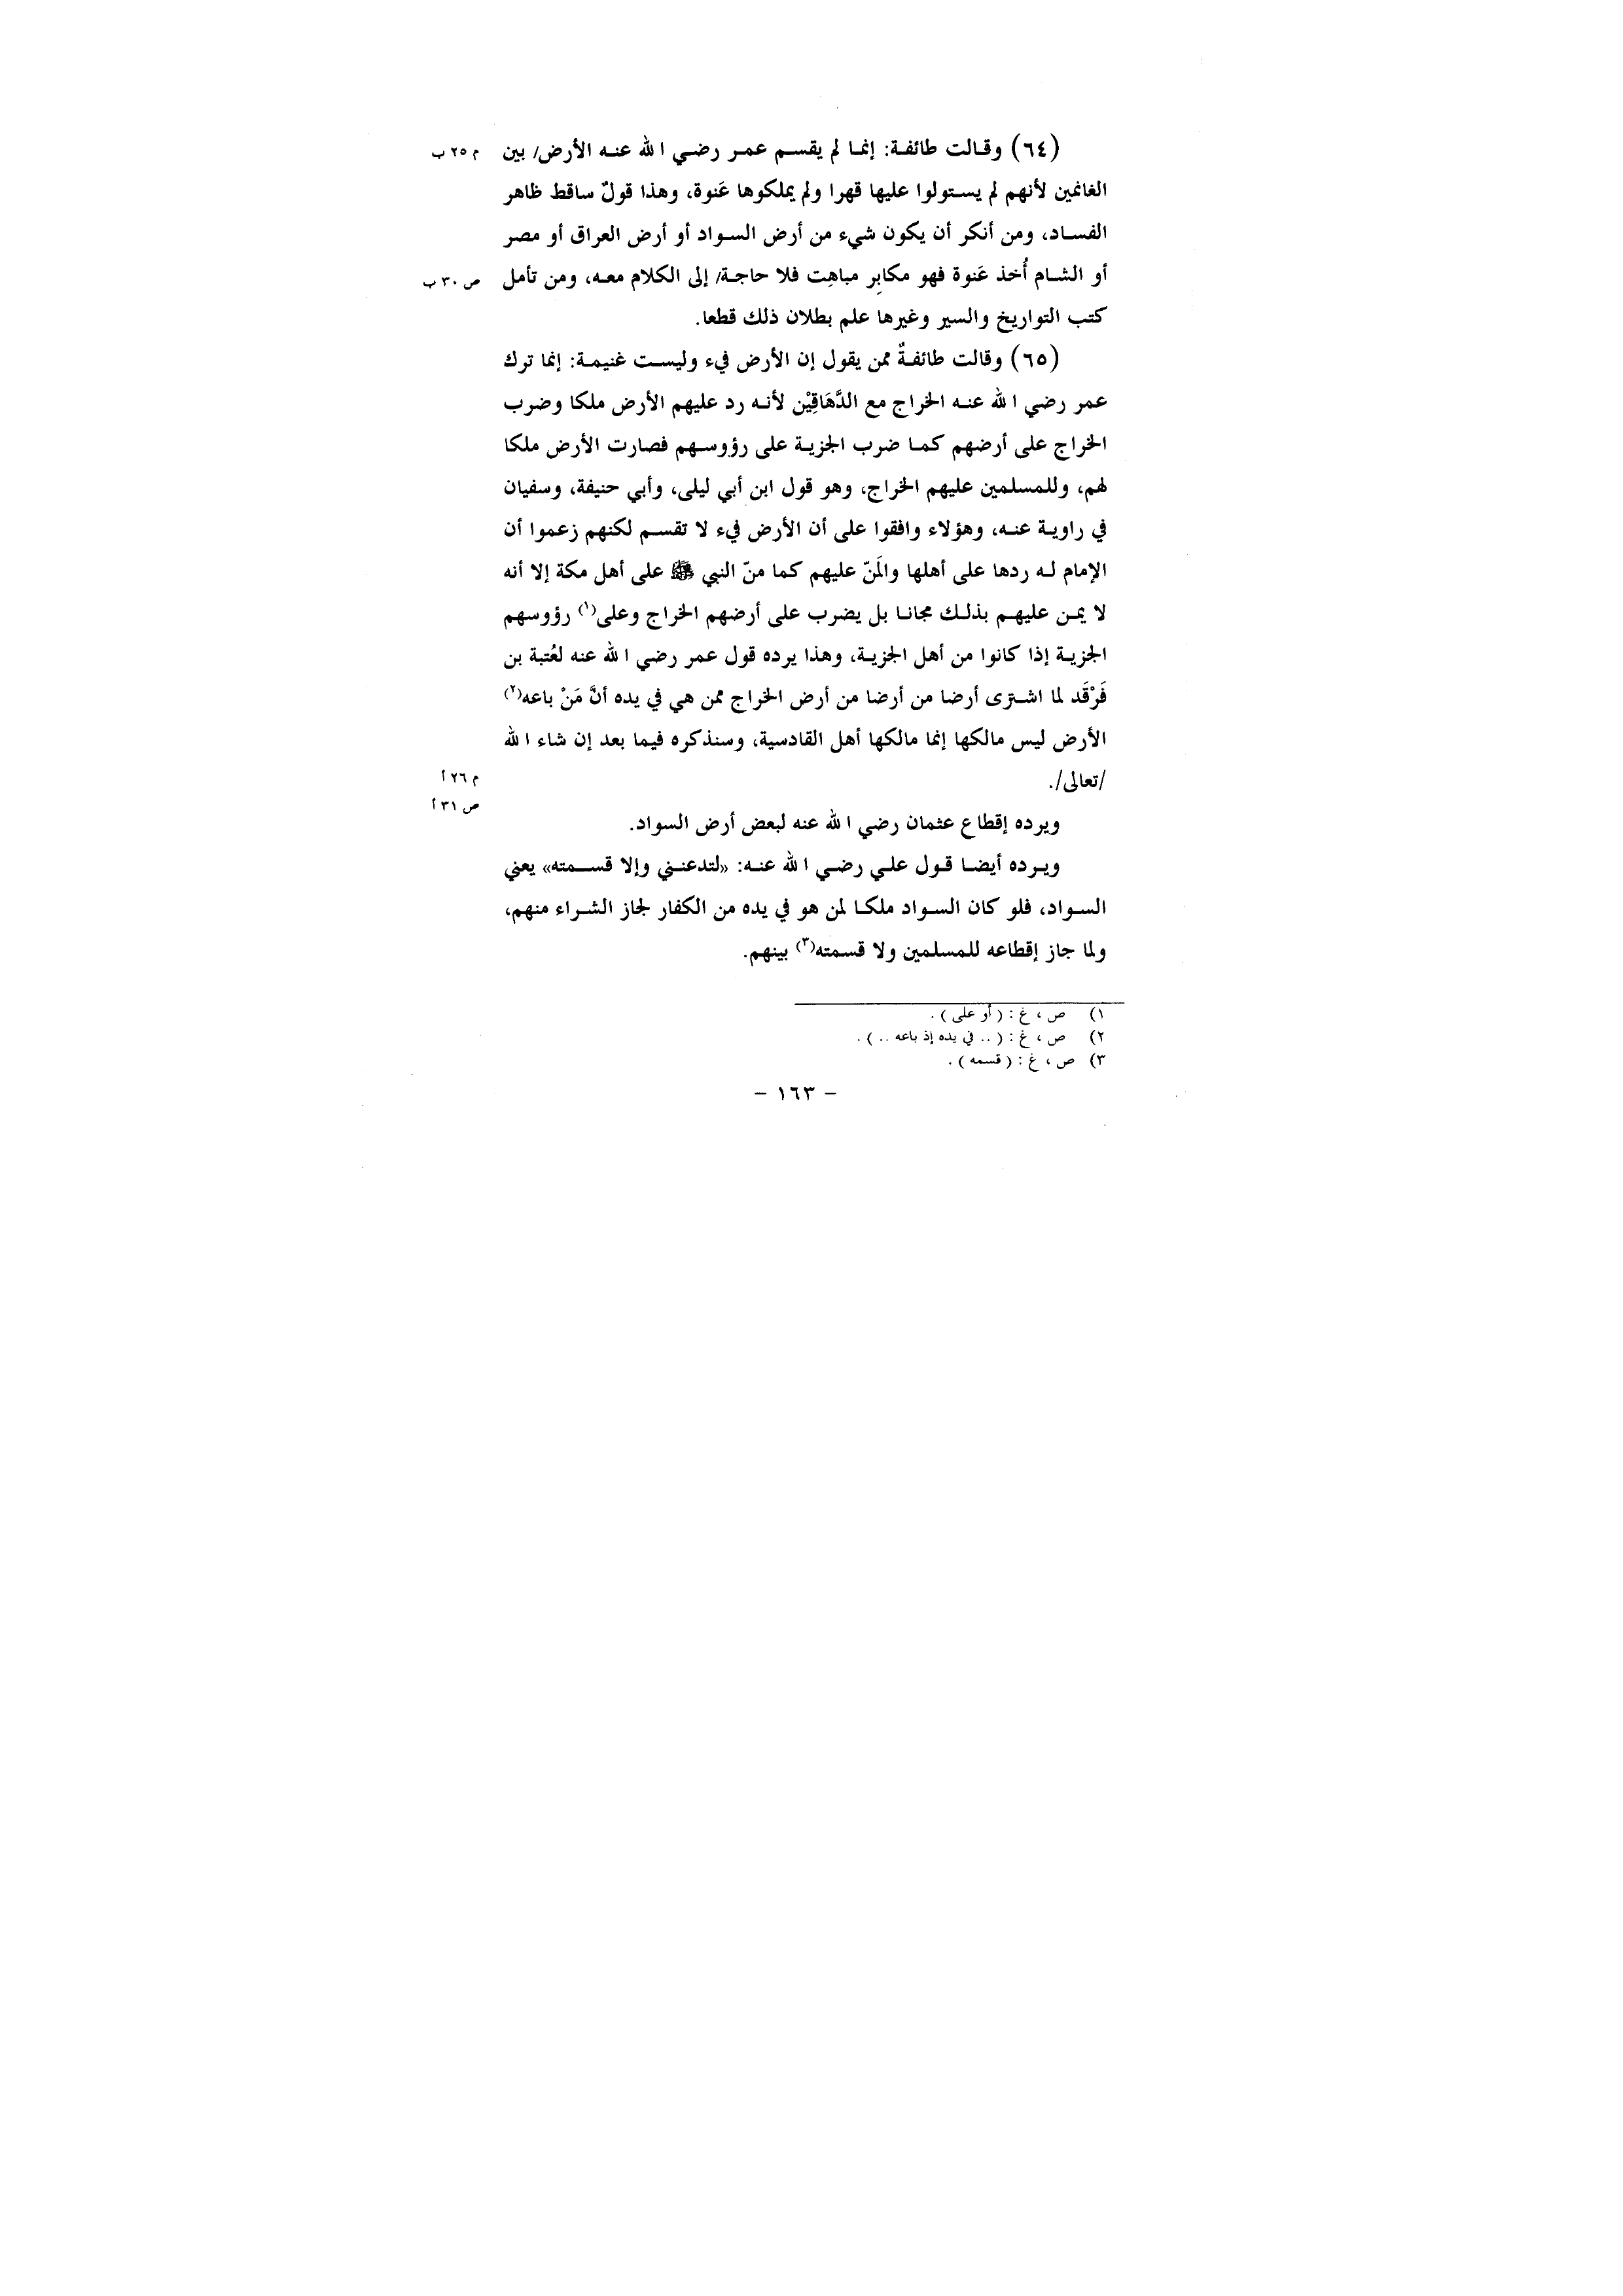 (٦٤) وقالت طائفة: إنما لم يقسم عمر رضي الله عنه الأرض/ بين م ٢٥ ب
الغانمين لأنهم لم يستولوا عليها قهرا ولم يملكوها عَنوة، وهذا قولٌ ساقط ظاهر
الفساد، ومن أنكر أن يكون شيء من أرض السواد أو أرض العراق أو مصر
أو الشام أُخذ عَنوة فهو مكابِر مباهِت فلا حاجة/ إلى الكلام معه، ومن تأمل ص ٣٠ ب
كتب التواريخ والسير وغيرها علم بطلان ذلك قطعا.
(٦٥) وقالت طائفةٌ ممن يقول إن الأرض فيء وليست غنيمة: إنما ترك
عمر رضي الله عنه الخراج مع الدَّهَاقِيْن لأنه رد عليهم الأرض ملكا وضرب
الخراج على أرضهم كما ضرب الجزية على رؤوسهم فصارت الأرض ملكا
لهم، وللمسلمين عليهم الخراج، وهو قول ابن أبي ليلى، وأبي حنيفة، وسفيان
في راوية عنه، وهؤلاء وافقوا على أن الأرض فيء لا تقسم لكنهم زعموا أن
الإمام له ردها على أهلها والمَنّ عليهم كما منّ النبي ﷺ على أهل مكة إلا أنه
لا يمن عليهم بذلك مجانا بل يضرب على أرضهم الخراج وعلى(١) رؤوسهم
الجزية إذا كانوا من أهل الجزية، وهذا يرده قول عمر رضي الله عنه لعُتبة بن
فَرْقَد لما اشترى أرضا من أرضا من أرض الخراج ممن هي في يده أنَّ مَنْ باعه(٢)
الأرض ليس مالكها إنما مالكها أهل القادسية، وسنذكره فيما بعد إن شاء الله
/تعالى/. م ٢٦ أ
ص ٣١ أ
ويرده إقطاع عثمان رضي الله عنه لبعض أرض السواد.
ويرده أيضا قول علي رضي الله عنه: «لتدعنني وإلا قسمته» يعني
السواد، فلو كان السواد ملكا لمن هو في يده من الكفار لجاز الشراء منهم،
ولما جاز إقطاعه للمسلمين ولا قسمته(٣) بينهم.
١) ص ، غ : ( أو على ) .
٢) ص ، غ : ( .. في يده إذ باعه .. ) .
٣) ص ، غ : ( قسمه ) .
– ١٦٣ –